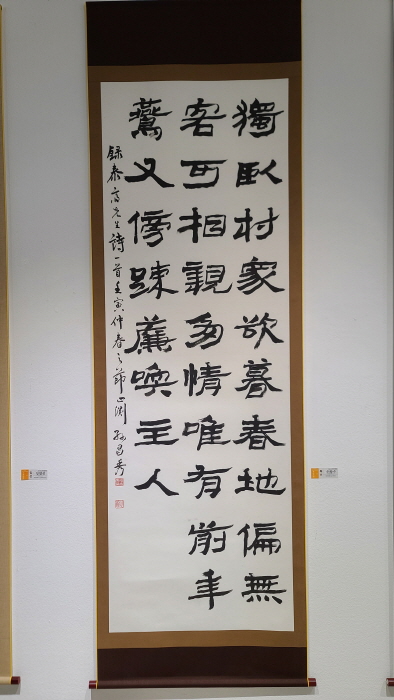 獨臥村家欲暮春地偏無
客可相親多情唯有前年
鷰又傍踈簾喚主人
錄泰齊先生詩一首壬寅仲春之節